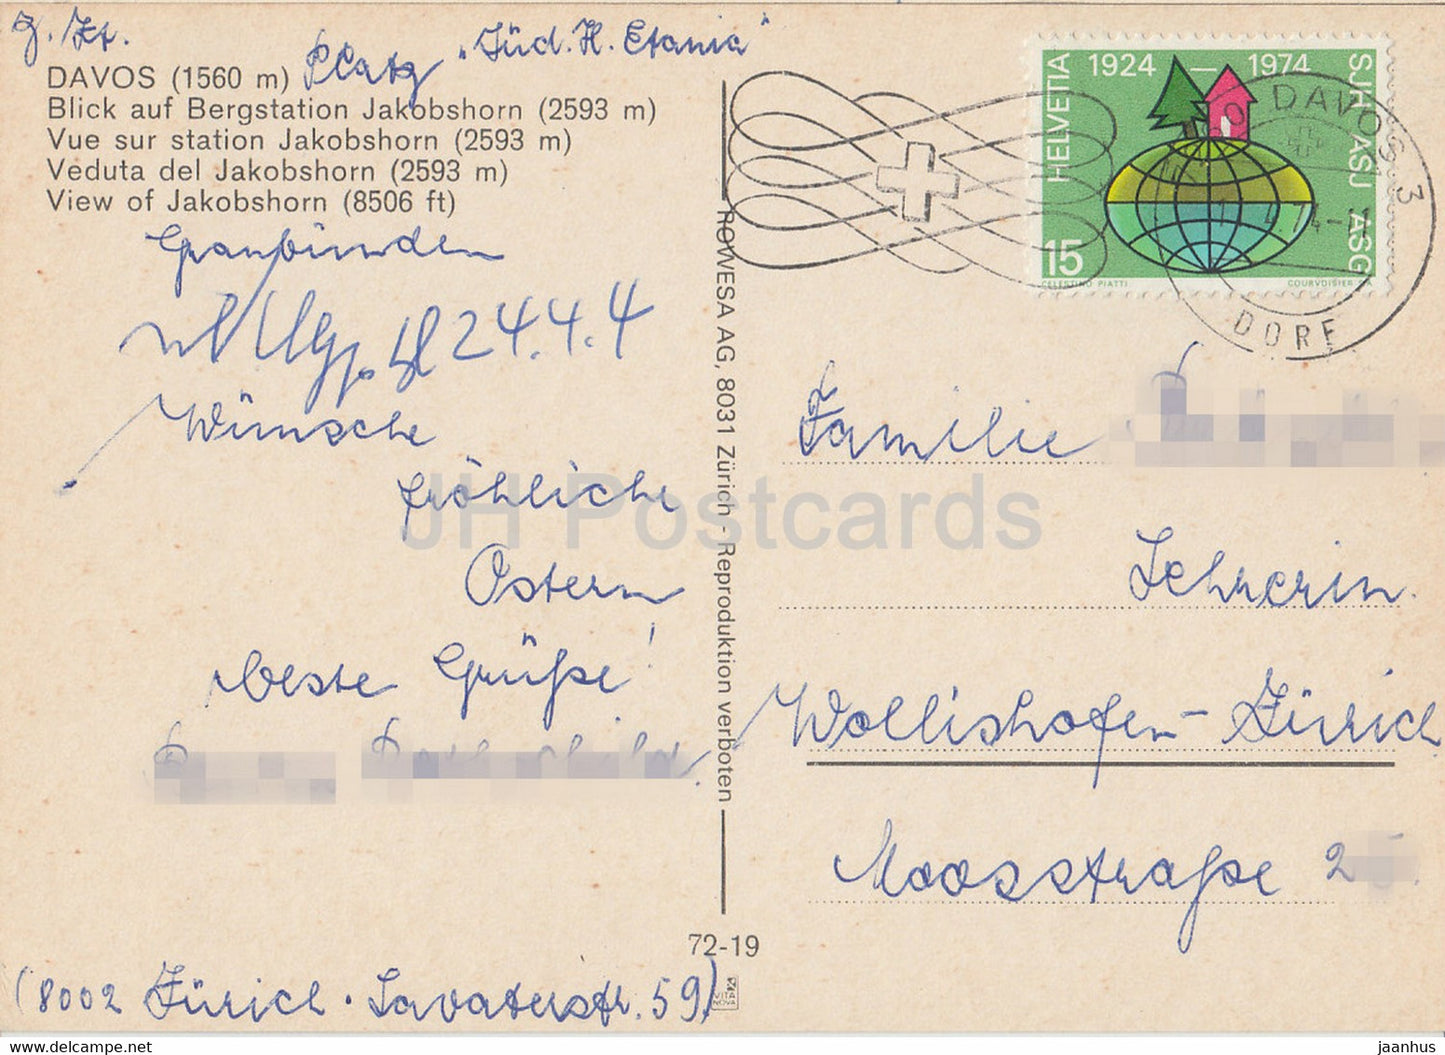 z. Zt.
Platz „Jüd. H. Etania"
DAVOS (1560 m)
Blick auf Bergstation Jakobshorn (2593 m)
Vue sur station Jakobshorn (2593 m)
Veduta del Jakobshorn (2593 m)
View of Jakobshorn (8506 ft)
Graubünden
24.4.4
Wünsche
fröhliche
Ostern
beste Grüße!
(8002 Zürich · Lavaterstr. 59)
ROWESA AG, 8031 Zürich - Reproduktion verboten
72-19
VITA NOVA
HELVETIA
1924 — 1974
SJH ASJ ASG
15
CELESTINO PIATTI
COURVOISIER SA
DAVOS 3
DORF
Familie
Lehrerin.
Wollishofen-Zürich
Moosstraße 2
JH Postcards
www.delcampe.net
jaanhus